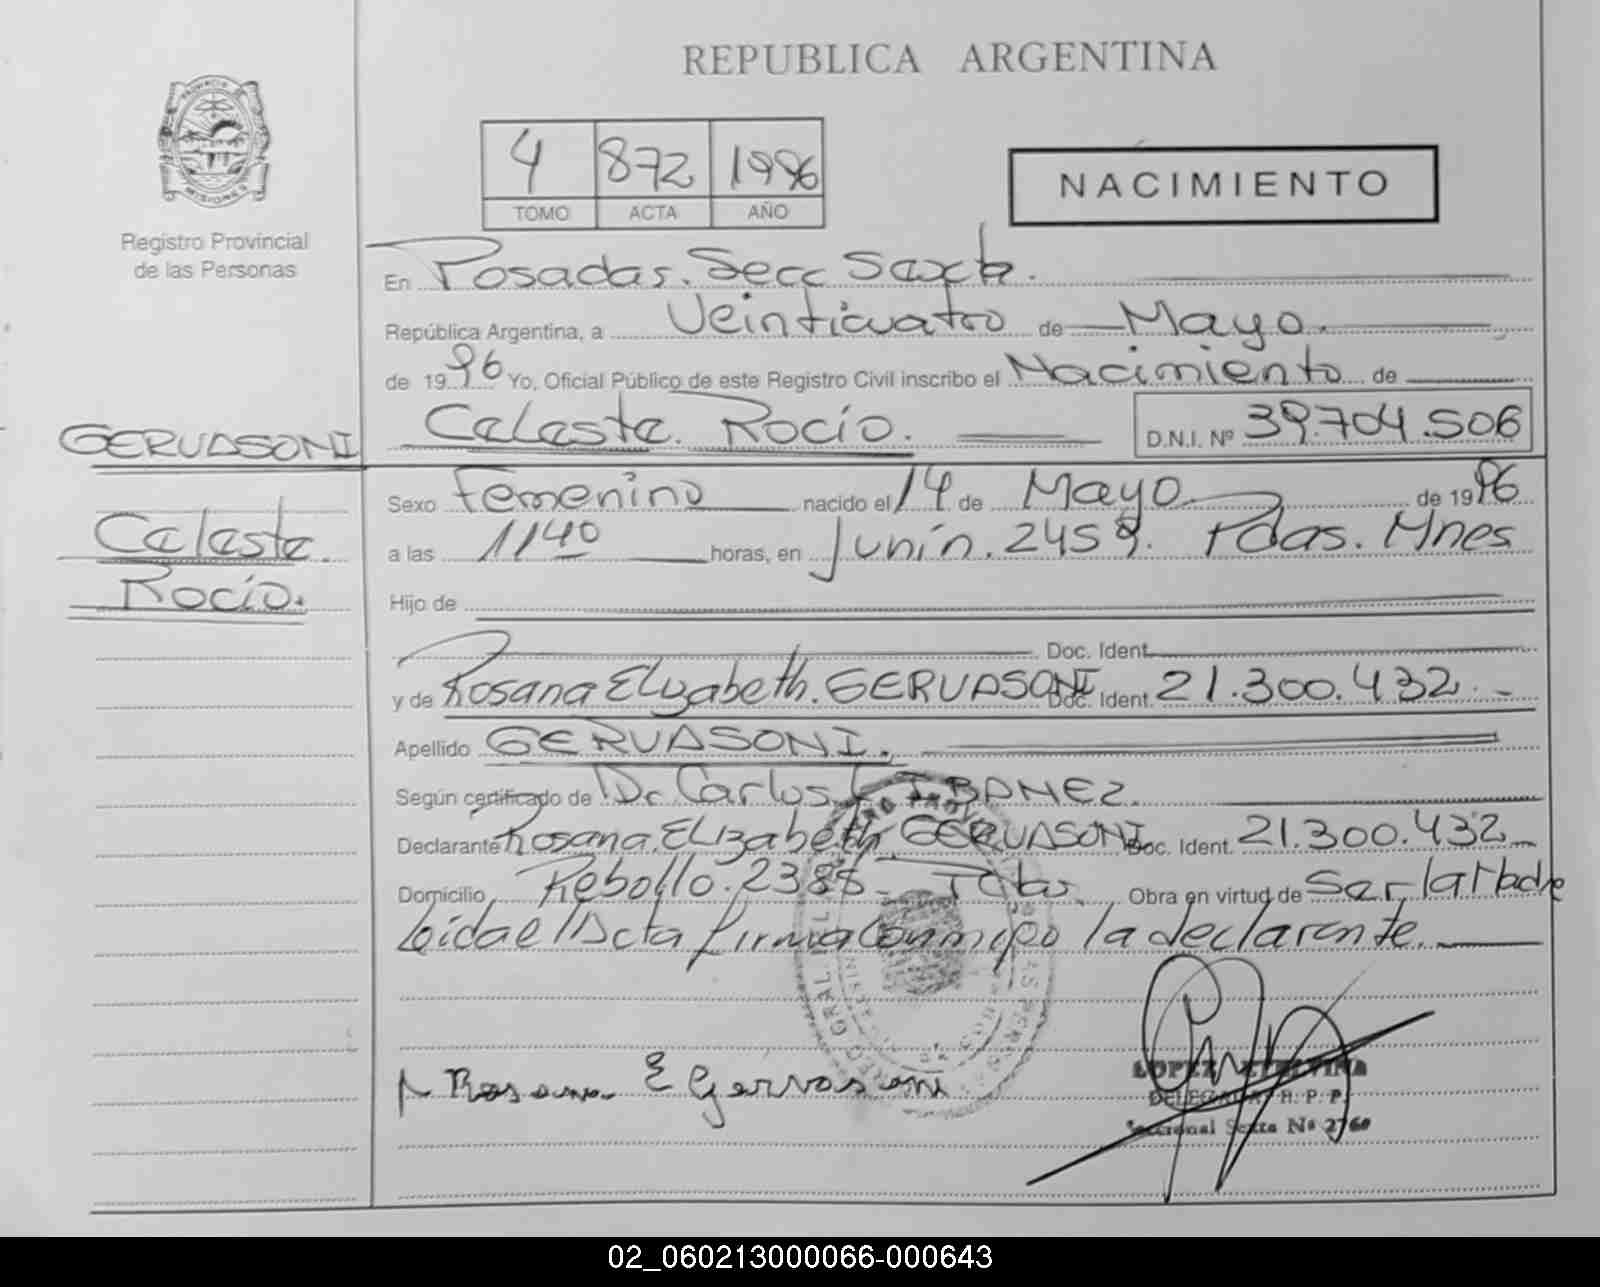 REPUBLICA ARGENTINA
PROVINCIA DE MISIONES
Registro Provincial
de las Personas
4 872 1996
TOMO ACTA AÑO
NACIMIENTO
En Posadas. Secc Sexta.
República Argentina, a Veinticuatro de Mayo.
de 1996 Yo, Oficial Público de este Registro Civil inscribo el Nacimiento de
GERVASONI
Celeste. Rocío. D.N.I. Nº 39.704.506
Celeste.
Rocío.
Sexo Femenino nacido el 14 de Mayo de 1996
a las 1140 horas, en Junín. 2459. Pdas. Mnes
Hijo de
Doc. Ident.
y de Rosana Elizabeth. GERVASONI Doc. Ident. 21.300.432.-
Apellido GERVASONI.
Según certificado de Dr Carlos IBAÑEZ.
Declarante Rosana. Elizabeth GERVASONI Doc. Ident. 21.300.432
Domicilio Rebollo. 2385 Obra en virtud de Ser la Madre
Leída el Acta firma Conmigo la declarante.
Rosana E Gervasoni
LOPEZ ETELVINA
DELEGADA R. P. P.
Seccional Sexta Nº 2760
02_060213000066-000643